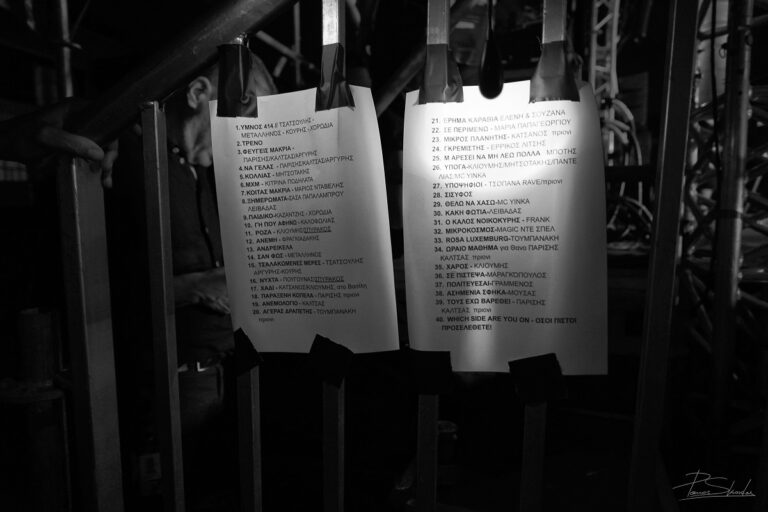 1.ΥΜΝΟΣ 414 // ΤΣΑΤΣΟΥΛΗΣ-
ΜΕΤΑΛΛΗΝΟΣ -ΚΟΥΡΗΣ -ΧΟΡΩΔΙΑ
2.ΤΡΕΝΟ
3.ΦΕΥΓΕΙΣ ΜΑΚΡΙΑ -
ΠΑΡΙΣΗΣ/ΚΑΛΤΣΑΣ/ΑΡΓΥΡΗΣ
4.ΝΑ ΓΕΛΑΣ - ΠΑΡΙΣΗΣ/ΚΑΛΤΣΑΣ/ΑΡΓΥΡΗΣ
5.ΚΟΛΛΙΑΣ - ΜΗΤΣΟΤΑΚΗΣ
6.ΜΧΜ - ΚΙΤΡΙΝΑ ΠΟΔΗΛΑΤΑ
7.ΚΟΙΤΑΣ ΜΑΚΡΙΑ - ΜΑΡΙΟΣ ΝΤΑΒΕΛΗΣ
8.ΞΗΜΕΡΩΜΑΤΑ-ΣΑΣΑ ΠΑΠΑΛΑΜΠΡΟΥ
ΛΕΙΒΑΔΑΣ
9.ΠΑΙΔΙΚΟ-ΚΑΖΑΝΤΖΗΣ - ΧΟΡΩΔΙΑ
10. ΓΗ ΠΟΥ ΑΦΗΝΩ- ΚΑΛΟΦΩΛΙΑΣ
11. ΡΟΖΑ - ΚΛΙΟΥΜΗΣ/ΣΠΥΡΑΚΟΣ
12. ΑΝΕΜΗ - ΦΡΑΓΚΙΑΔΑΚΗΣ
13. ΑΝΔΡΕΙΚΕΛΑ
14. ΣΑΝ ΦΩΣ - ΜΕΤΑΛΛΗΝΟΣ
15. ΤΣΑΛΑΚΩΜΕΝΕΣ ΜΕΡΕΣ - ΤΣΑΤΣΟΥΛΗΣ
ΑΡΓΥΡΗΣ-ΚΟΥΡΗΣ
16. ΝΥΧΤΑ - ΠΟΥΓΟΥΝΑΣ/ΣΠΥΡΑΚΟΣ
17. ΧΑΔΙ - ΚΑΤΣΙΑΝΟΣ/ΚΛΙΟΥΜΗΣ, στο Βασίλη
18. ΠΑΡΑΞΕΝΗ ΚΟΠΕΛΑ - ΠΑΡΙΣΗΣ πριονι
19. ΑΝΕΜΟΛΟΓΙΟ - ΚΑΛΤΣΑΣ
20. ΑΓΕΡΑΣ ΔΡΑΠΕΤΗΣ - ΤΟΥΜΠΑΝΑΚΗ
πριονι
21. ΕΡΗΜΑ ΚΑΡΑΒΙΑ ΕΛΕΝΗ & ΣΟΥΖΑΝΑ
22. ΣΕ ΠΕΡΙΜΕΝΩ - ΜΑΡΙΑ ΠΑΠΑΓΕΩΡΓΙΟΥ
23. ΜΙΚΡΟΣ ΠΛΑΝΗΤΗΣ- ΚΑΤΣΙΑΝΟΣ πριονι
24. ΓΚΡΕΜΙΣΤΗΣ - ΕΡΡΙΚΟΣ ΛΙΤΣΗΣ
25. Μ ΑΡΕΣΕΙ ΝΑ ΜΗ ΛΕΩ ΠΟΛΛΑ ΜΠΟΤΗΣ
26. ΥΠΟΓΑ-ΚΛΙΟΥΜΗΣ/ΜΗΤΣΟΤΑΚΗΣ/ΠΑΝΤΕ
ΛΙΑΣ/MC YINKA
27. ΥΠΟΨΗΦΙΟΙ - ΤΣΟΠΑΝΑ RAVE/πριονι
28. ΣΙΣΥΦΟΣ
29. ΘΕΛΩ ΝΑ ΧΑΣΩ-MC YINKA
30. ΚΑΚΗ ΦΩΤΙΑ-ΛΕΙΒΑΔΑΣ
31. Ο ΚΑΛΟΣ ΝΟΙΚΟΚΥΡΗΣ - FRANK
32. ΜΙΚΡΟΚΟΣΜΟΣ-MAGIC ΝΤΕ ΣΠΕΛ
33. ROSA LUXEMBURG-ΤΟΥΜΠΑΝΑΚΗ
34. ΩΡΑΙΟ ΜΑΘΗΜΑ για Θανο ΠΑΡΙΣΗΣ
ΚΑΛΤΣΑΣ πριονι
35. ΧΑΡΟΣ - ΚΛΙΟΥΜΗΣ
36. ΣΕ ΠΙΣΤΕΨΑ-ΜΑΡΑΓΚΟΠΟΥΛΟΣ
37. ΠΟΛΙΤΕΥΕΣΑΙ-ΓΡΑΜΜΕΝΟΣ
38. ΑΣΗΜΕΝΙΑ ΣΦΗΚΑ-ΜΟΥΣΑΣ
39. ΤΟΥΣ ΕΧΩ ΒΑΡΕΘΕΙ - ΠΑΡΙΣΗΣ
ΚΑΛΤΣΑΣ πριονι
40. WHICH SIDE ARE YOU ON - ΟΣΟΙ ΠΙΣΤΟΙ
ΠΡΟΣΕΛΘΕΤΕ!